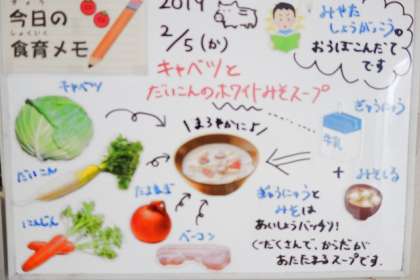 きょう
今日の
しょくいく
食育メモ
2019
2/5(か)
みやた
しょうがっこう
おうぼこんだて
です
キャベツと
だいこんのホワイトみそスープ
キャベツ
まろやかに♪
ぎゅうにゅう
牛乳
だいこん
たまねぎ
+ みそしる
にんじん
ベーコン
ぎゅうにゅうと
みそは
あいしょうバッチリ!
ぐだくさんで、からだが
あたたまるスープです。